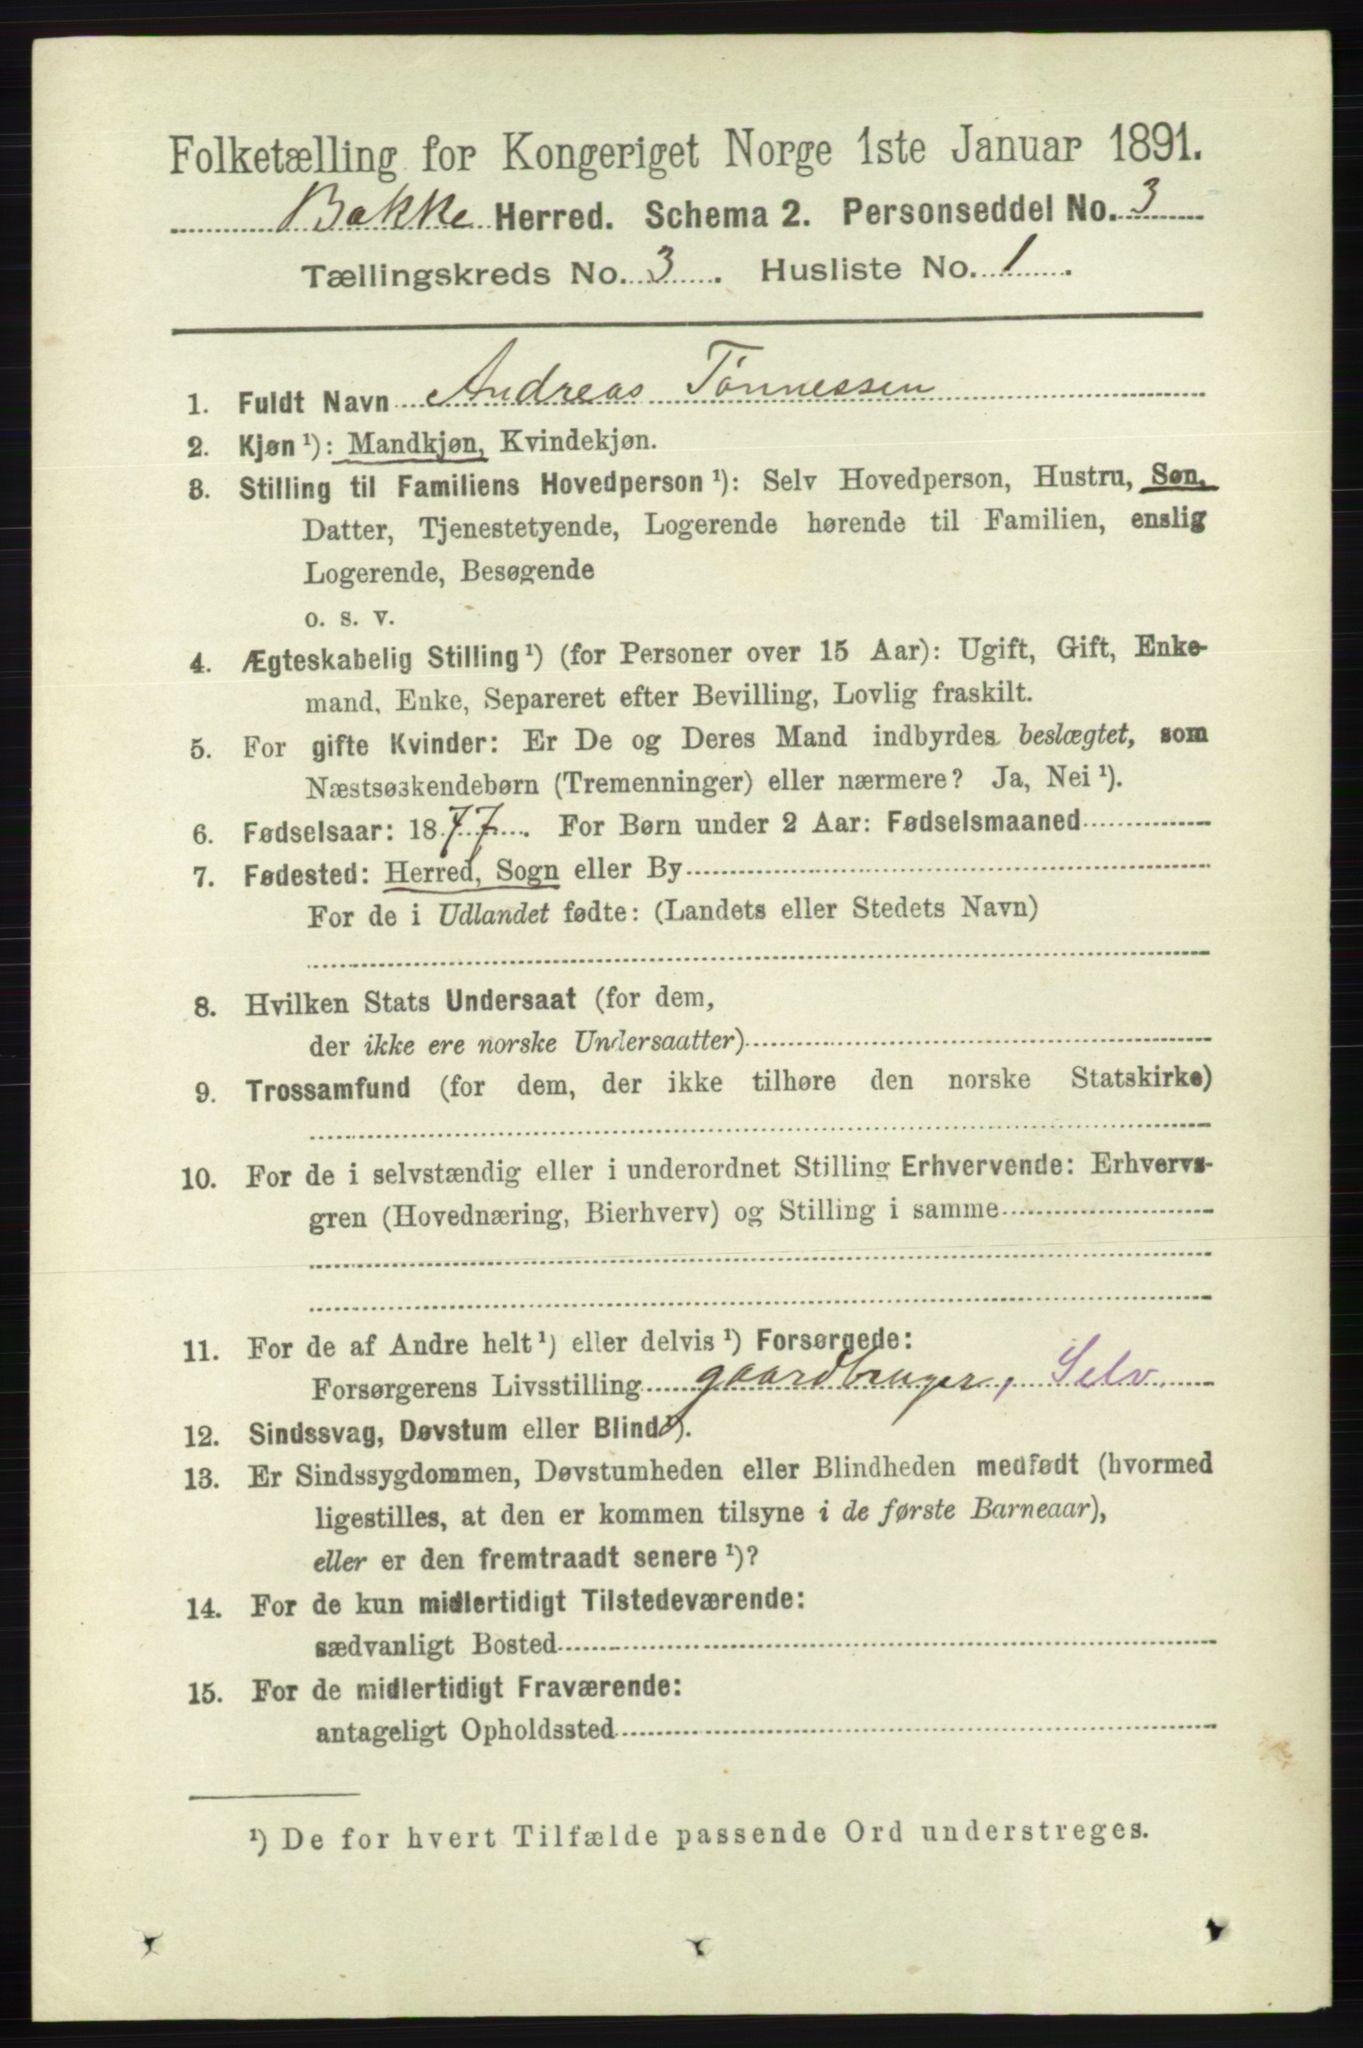 Folketælling for Kongeriget Norge 1ste Januar 1891.
Bakke Herred. Schema 2. Personseddel No. 3
Tællingskreds No. 3. Husliste No. 1.
1. Fuldt Navn Andreas Tönnessen
2. Kjøn ¹): Mandkjøn, Kvindekjøn.
3. Stilling til Familiens Hovedperson ¹): Selv Hovedperson, Hustru, Søn,
Datter, Tjenestetyende, Logerende hørende til Familien, enslig
Logerende, Besøgende
o. s. v.
4. Ægteskabelig Stilling ¹) (for Personer over 15 Aar): Ugift, Gift, Enke-
mand, Enke, Separeret efter Bevilling, Lovlig fraskilt.
5. For gifte Kvinder: Er De og Deres Mand indbyrdes beslægtet, som
Næstsøskendebørn (Tremenninger) eller nærmere? Ja, Nei ¹).
6. Fødselsaar: 1877. For Børn under 2 Aar: Fødselsmaaned
7. Fødested: Herred, Sogn eller By
For de i Udlandet fødte: (Landets eller Stedets Navn)
8. Hvilken Stats Undersaat (for dem,
der ikke ere norske Undersaatter)
9. Trossamfund (for dem, der ikke tilhøre den norske Statskirke)
10. For de i selvstændig eller i underordnet Stilling Erhvervende: Erhvervs-
gren (Hovednæring, Bierhverv) og Stilling i samme
11. For de af Andre helt ¹) eller delvis ¹) Forsørgede:
Forsørgerens Livsstilling gaardbruger, Selv
12. Sindssvag, Døvstum eller Blind ¹).
13. Er Sindssygdommen, Døvstumheden eller Blindheden medfødt (hvormed
ligestilles, at den er kommen tilsyne i de første Barneaar),
eller er den fremtraadt senere ¹)?
14. For de kun midlertidigt Tilstedeværende:
sædvanligt Bosted
15. For de midlertidigt Fraværende:
antageligt Opholdssted
¹) De for hvert Tilfælde passende Ord understreges.